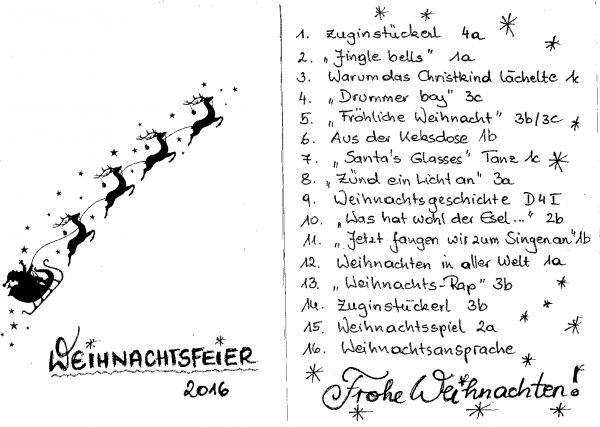 WEIHNACHTSFEIER
2016
1. Zuginstückerl 4a
2. „Jingle bells" 1a
3. Warum das Christkind lächelte 1c
4. „Drummer boy" 3c
5. „Fröhliche Weihnacht" 3b/3c
6. Aus der Keksdose 1b
7. „Santa's Glasses" Tanz 1c
8. „Zünd ein Licht an" 3a
9. Weihnachtsgeschichte D4I
10. „Was hat wohl der Esel..." 2b
11. „Jetzt fangen wir zum Singen an" 1b
12. Weihnachten in aller Welt 1a
13. „Weihnachts-Rap" 3b
14. Zuginstückerl 3b
15. Weihnachtsspiel 2a
16. Weihnachtsansprache
Frohe Weihnachten!